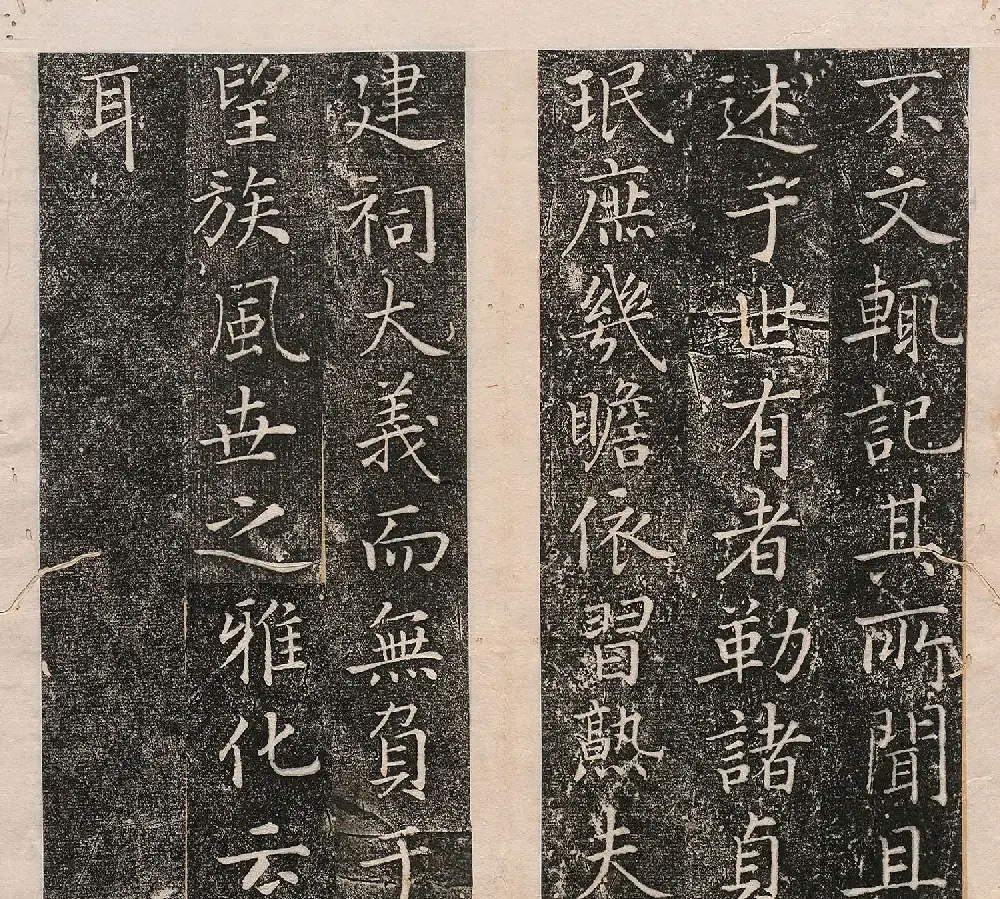 不文輒記其所聞且
述于世有者勒諸貞
珉庶幾瞻依習熟夫
建祠大義而無負于
望族風世之雅化云
耳